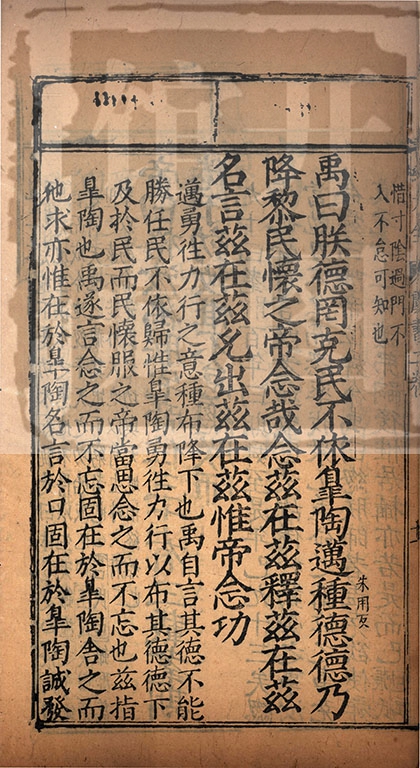 惜寸陰過門不
入不怠可知也
禹曰朕德罔克民不依皐陶邁種德德乃
降黎民懷之帝念哉念茲在茲釋茲在茲
名言茲在茲允出茲在茲惟帝念功
邁勇徃力行之意種布降下也禹自言其德不能
勝任民不依歸惟皐陶勇徃力行以布其德德下
及於民而民懷服之帝當思念之而不忘也茲指
皐陶也禹遂言念之而不忘固在於皐陶舍之而
他求亦惟在於皐陶名言於口固在於皐陶誠發